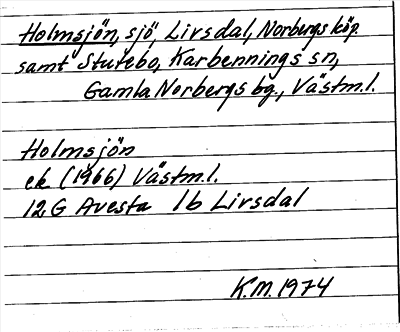 Holmsjön, sjö, Livsdal, Norbergs köp.
samt Stutebo, Karbennings sn,
Gamla Norbergs bg., Västm.l.
Holmsjön
ek (1966) Västm.l.
12G Avesta 1b Livsdal
K.M. 1974